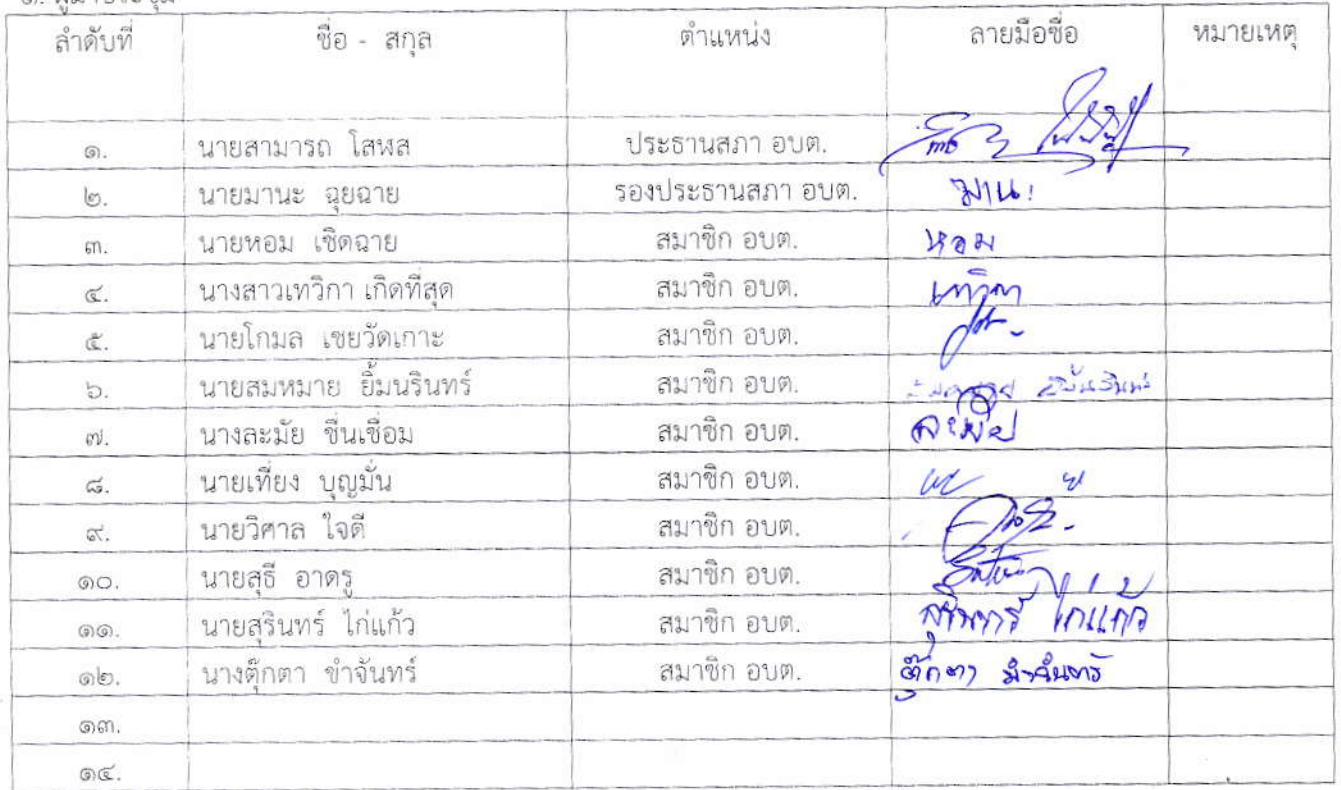 ๑. ผู้มาประชุม
ลำดับที่ ชื่อ - สกุล ตำแหน่ง ลายมือชื่อ หมายเหตุ
๑. นายสามารถ โสฬส ประธานสภา อบต.
๒. นายมานะ ฉุยฉาย รองประธานสภา อบต. มานะ
๓. นายหอม เชิดฉาย สมาชิก อบต. หอม
๔. นางสาวเทวิกา เกิดที่สุด สมาชิก อบต. เทวิกา
๕. นายโกมล เชยวัดเกาะ สมาชิก อบต.
๖. นายสมหมาย ยิ้มนรินทร์ สมาชิก อบต.
๗. นางละมัย ชื่นเชื่อม สมาชิก อบต. ละมัย
๘. นายเที่ยง บุญมั่น สมาชิก อบต.
๙. นายวิศาล ใจดี สมาชิก อบต.
๑๐. นายสุธี อาดรู สมาชิก อบต.
๑๑. นายสุรินทร์ ไก่แก้ว สมาชิก อบต. สุรินทร์ ไก่แก้ว
๑๒. นางตุ๊กตา ขำจันทร์ สมาชิก อบต. ตุ๊กตา ขำจันทร์
๑๓.
๑๔.